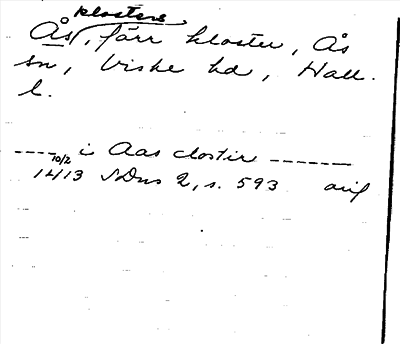 klosters
Ås, förr kloster, Ås
sn, Viske hd, Hall.
l.
---- 10/2 i Aas closter -------
1413 SDns 2, s. 593 avs